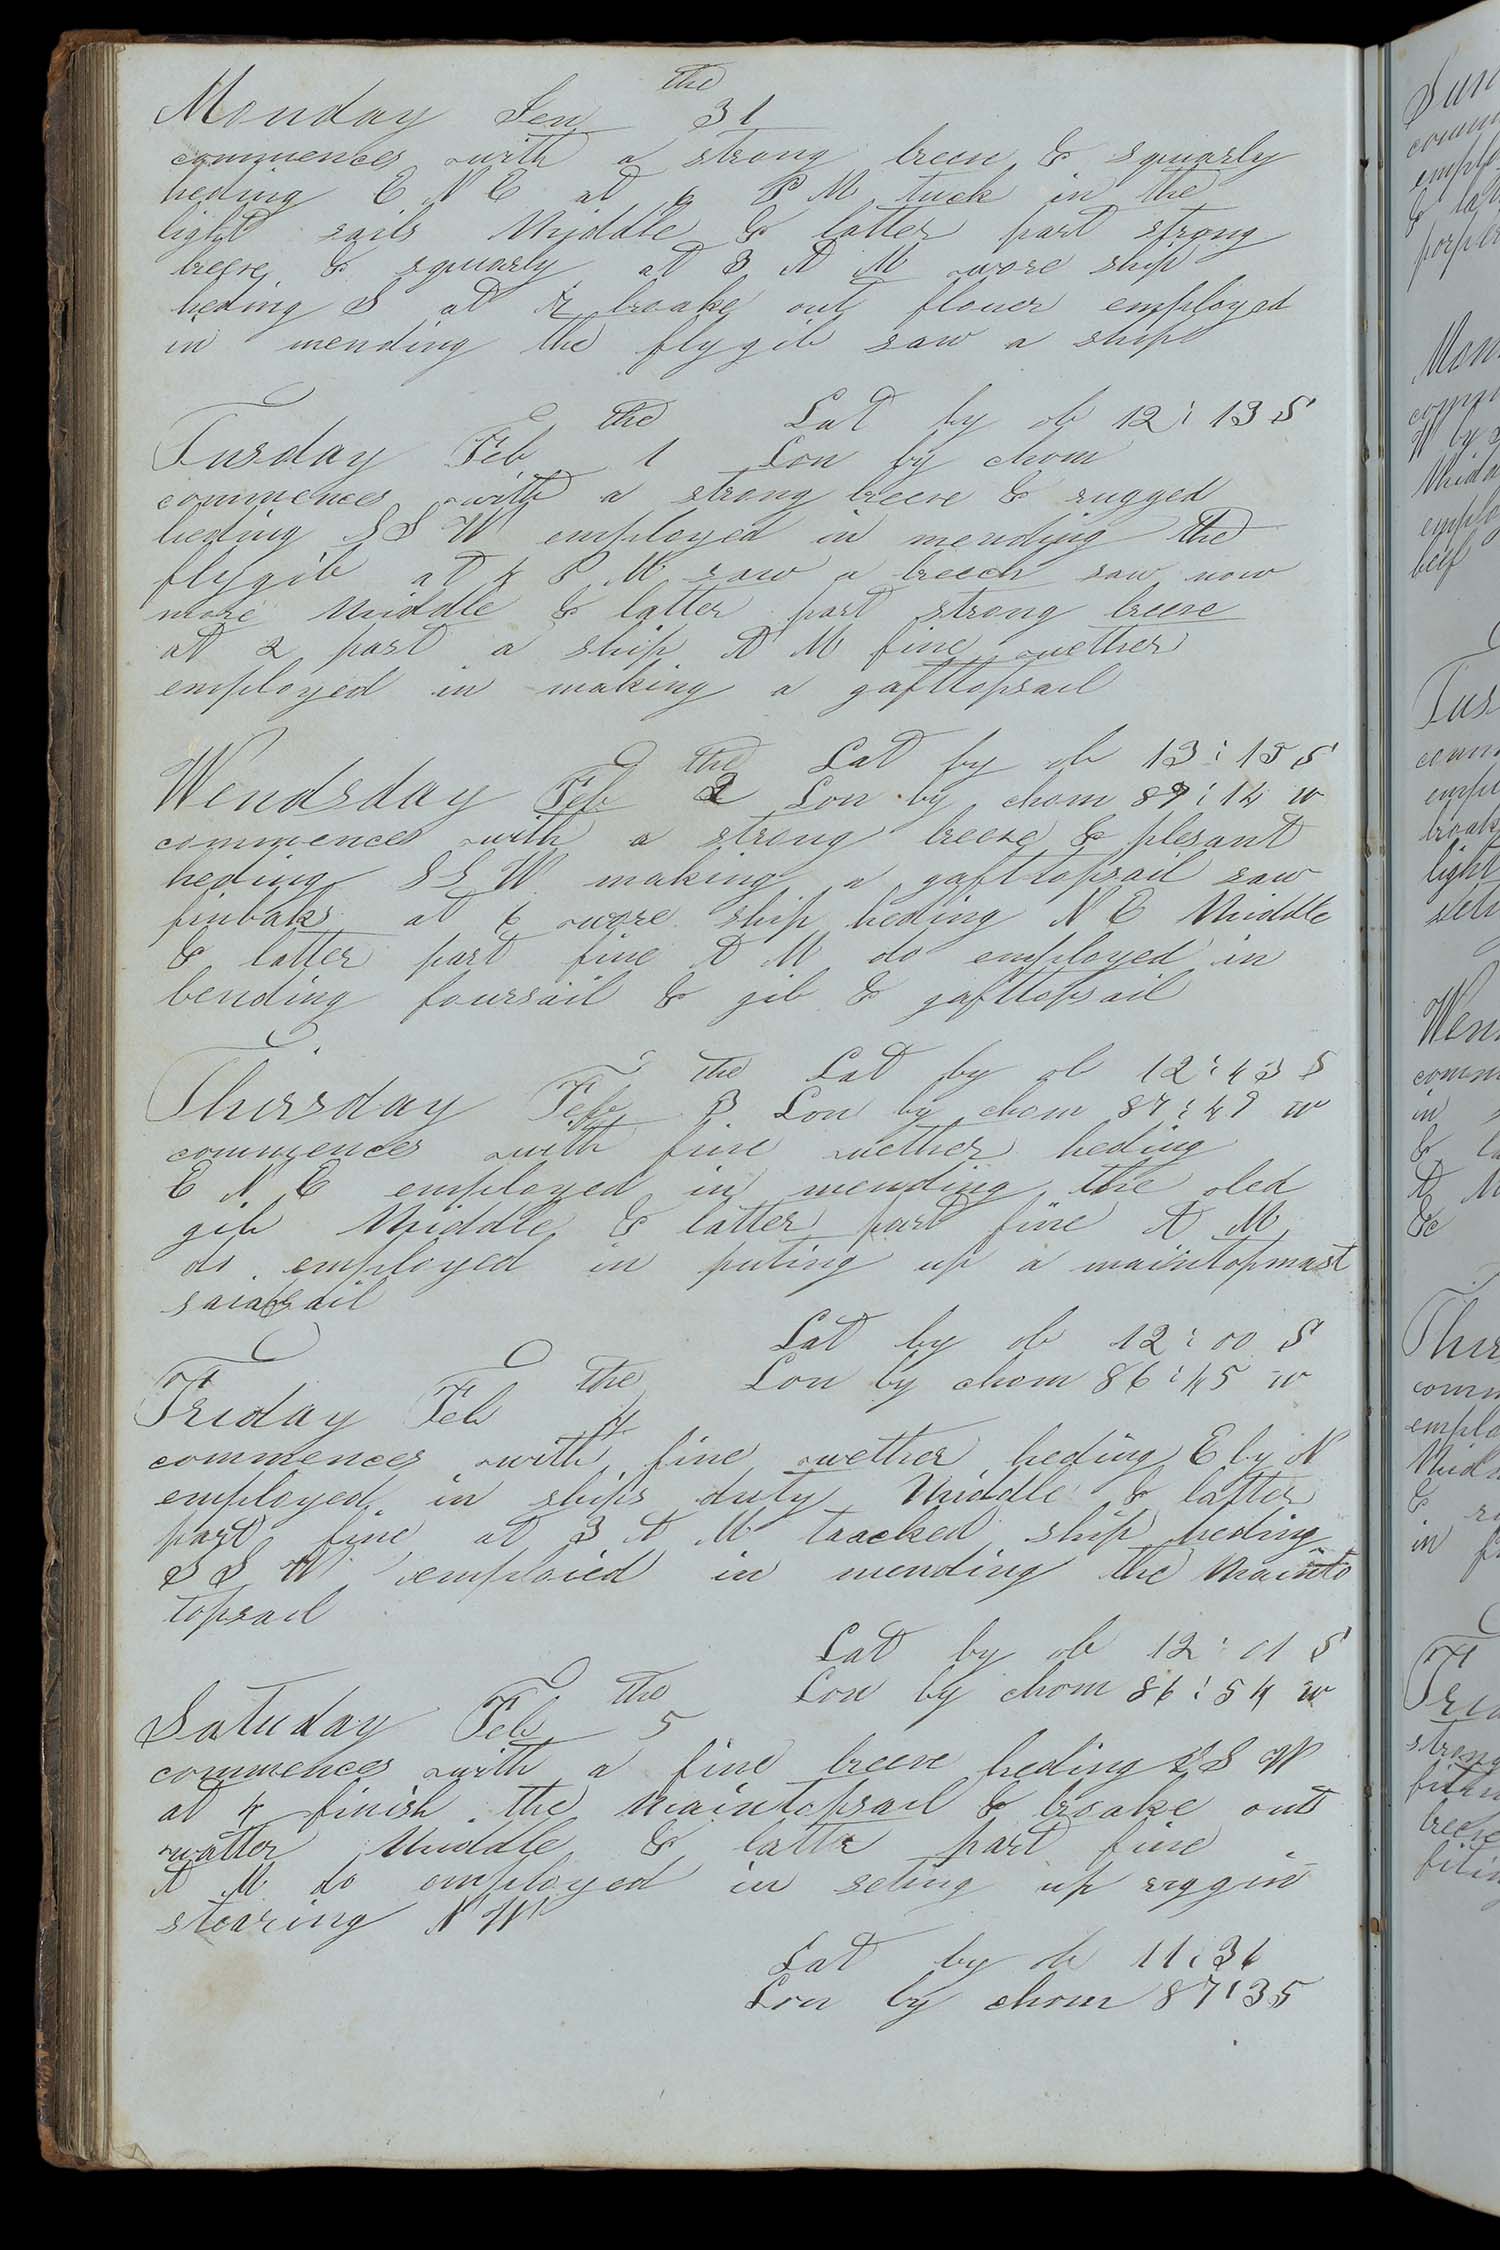 Monday Jen the 31
commences with a strong breese & squarly
heding E N E at 4 P M tuck in the
light sails Middle & latter part strong
breese & squarly at 3 A M wore ship
heding S at 7 broake out flouer employed
in mending the flygib saw a ship
Lat by ob 12 : 13 S
Tusday Feb the 1 Lon by chom
commences with a strong breese & rugged
heding S S W employed in mending the
flygib at 4 P M saw a breech saw now
more Middle & latter part strong breese
at 2 past a ship A M fine wether
employed in making a gafttopsail
Lat by ob 13 : 15 S
Wendsday Feb the 2 Lon by chom 89 : 14 w
commences with a strong breese & plesant
heding S S W making a gafttopsail saw
finbaks at 6 wore ship heding N E Middle
& latter part fine A M do employed in
bending foursail & gib & gafttopsail
Lat by ob 12 : 43 S
Thursday Feb the 3 Lon by chom 87 : 49 w
commences with fine wether heding
E N E employed in mending the oled
gib Middle & latter part fine A M
do employed in puting up a maintopmast
Lat by ob 12 : 00 S
Friday Feb the 4 Lon by chom 86 : 45 w
commences with fine wether heding E by N
employed in ships duty Middle & latter
part fine at 3 A M taacked ship heding
S S W emploied in mending the Mainto
topsail
Lat by ob 12 : 01 S
Satuday Feb the 5 Lon by chom 86 : 54 w
commences with a fine breese heding S S W
at 4 finish the Maintopsail & broake out
watter Middle & latter part fine
A M do employed in seting up riggin
stearing N W
Lat by ob 11 : 36
Lon by chom 87 : 35